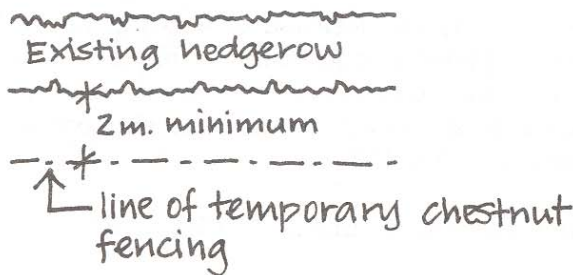 Existing hedgerow
2m. minimum
line of temporary chestnut
fencing